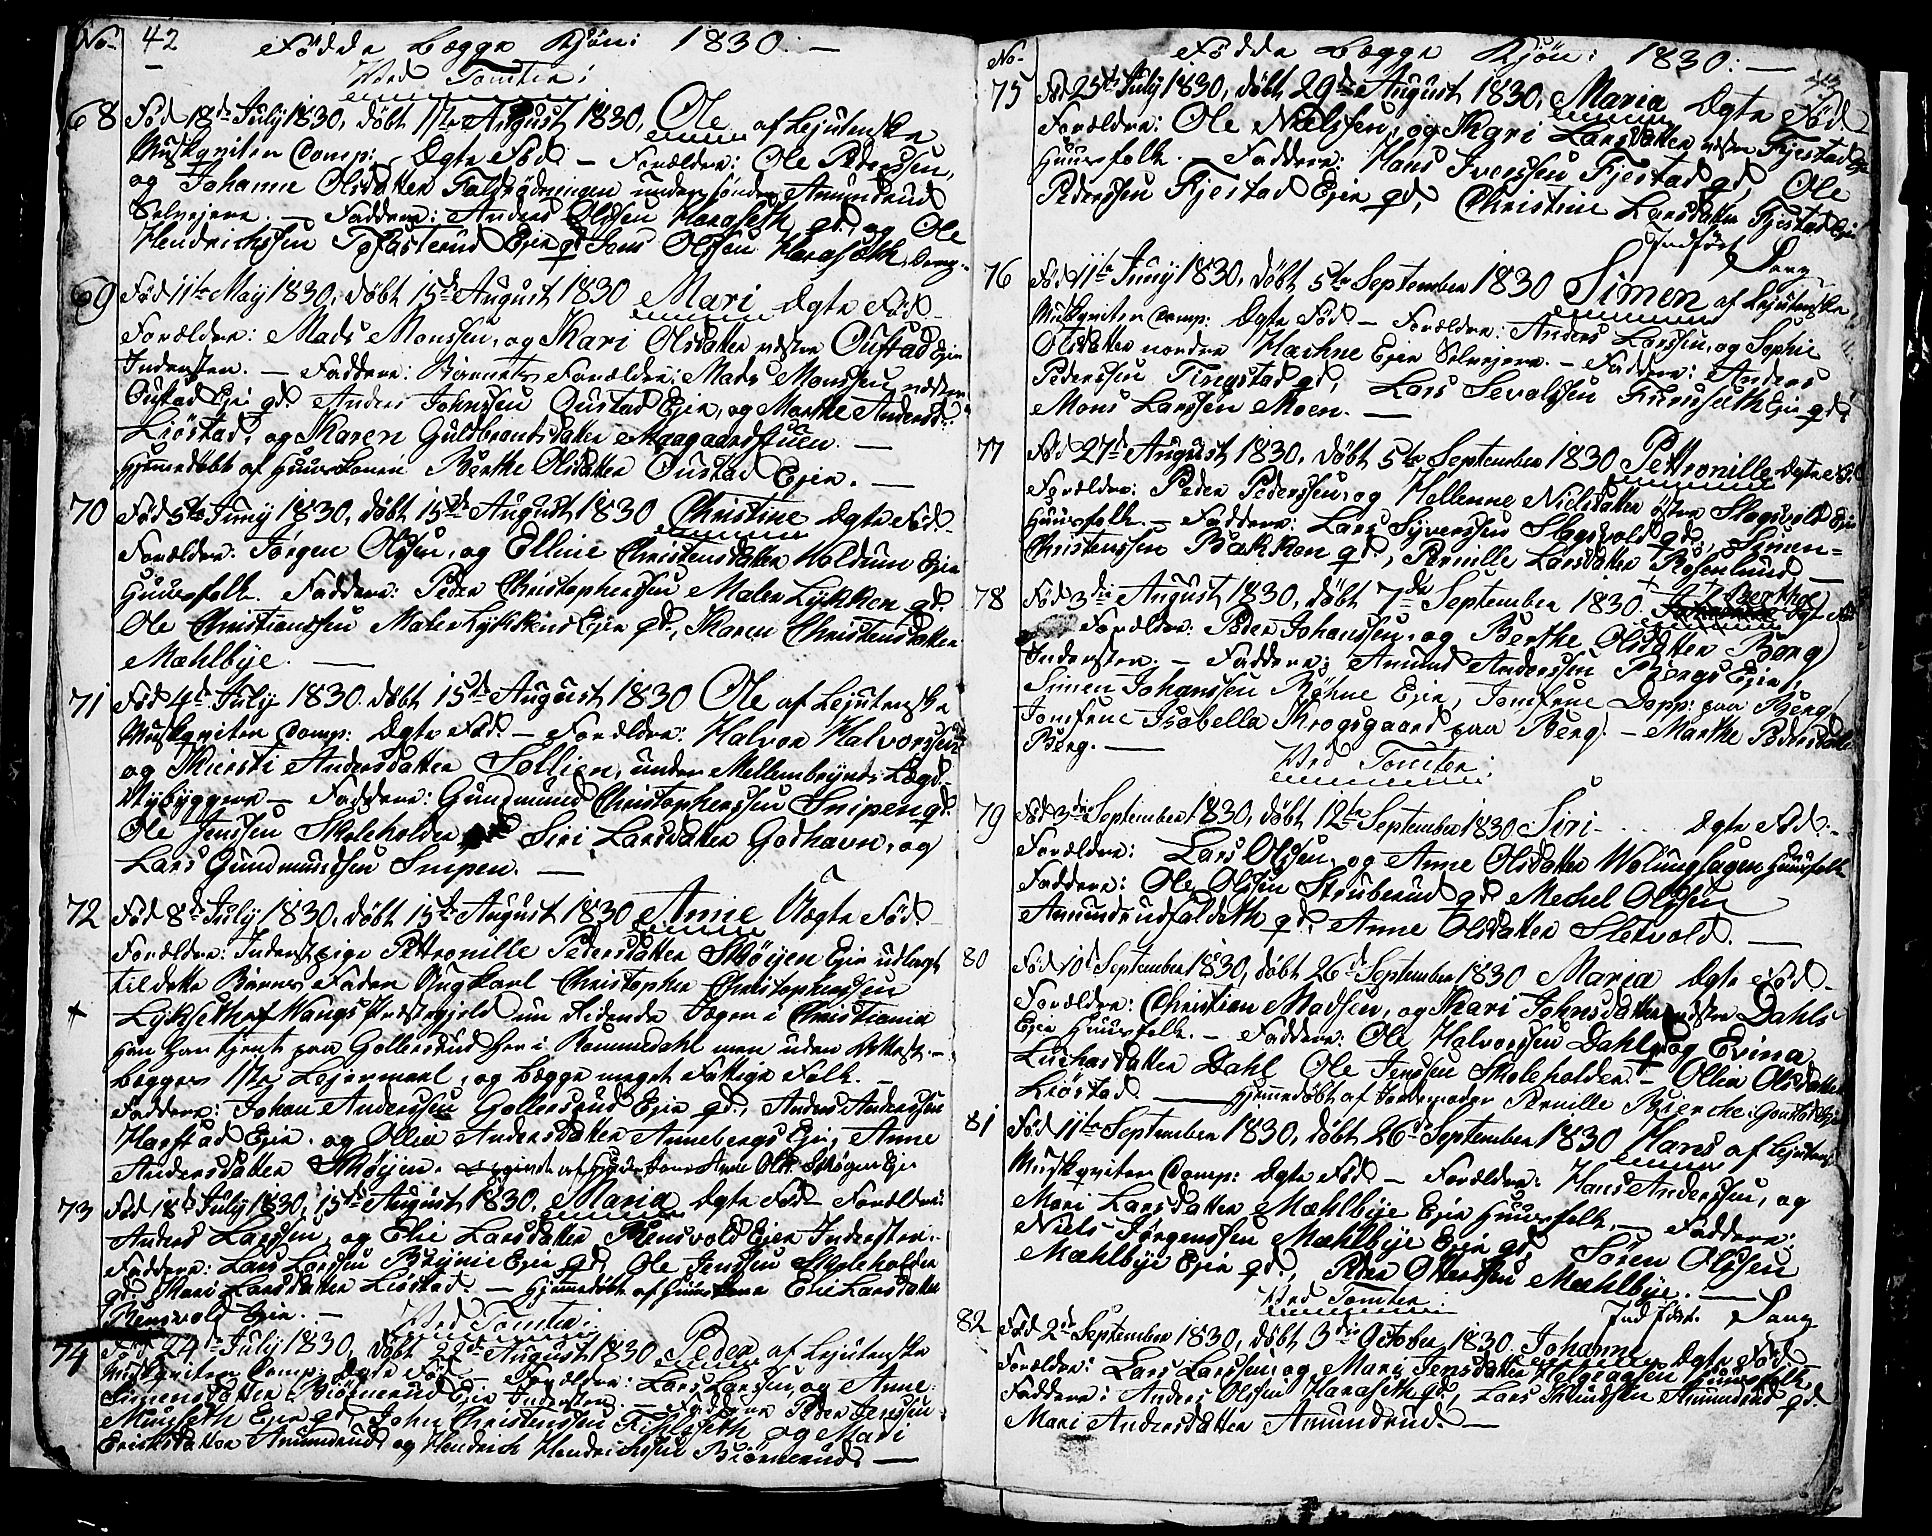 No 42 Födde begge Kjön: 1830. —
Ved Tomter:
68 Fød 18de July 1830, döbt 1ste August 1830, Ole af Lejutenske
Musqviter Comp: Ægte Fød. — Forældre: Ole Pederssen,
og Johanne Olsdatter Faldrödningen under söndre Amundrud
Selvejere. — Faddere: Anders Olssen Haraseth gd, og Ole
Hendrichssen Tofasterud Ejer gd, Jens Olssen Haraseth, Dreng.
69 Fød 11te May 1830, döbt 15de August 1830 Mari Ægte Fød —
Forældre: Mads Monssen, og Kari Olsdatter vestre Oustad Ejer
Inderster. — Faddere: Barnets Forældre: Mads Monssen vestre
Oustad Eje gd. Anders Johnssen Oustad Ejer, og Marthe Andersd:
Liöstad, og Karen Guldbrandsdatter Maagaardstuen. —
Hjemmedøbt af Huuskonen Berthe Olsdatter Oustad Ejer. —
70 Fød 5te Juny 1830, döbt 15de August 1830 Christine Ægte Fød.
Forældre: Jörgen Olssen, og Elline Christensdatter Holdum Ejer
Huusfolk. Faddere: Peder Christopherssen Maler Lykken, gd.
Ole Christianssen Maler Lykkens Ejer gd., Karen Christensdatter
Mæhlbye. —
71 Fød 4de July 1830. döbt 15de August 1830 Ole af Lejutenske
Musqviter Comp: Ægte Fød. — Forældre: Halvor Halvorssen
og Kiersti Andersdatter Sollien, under Mellembyens Lægd.
Nybyggere — Faddere: Gundmund Christopherssen Snipen gd.
Ole Jenssen Skoleholder, Siri Larsdatter Godhavn, og
Lars Gundmundssen Snipen. —
72 Fød 8de July 1830, döbt 15de August 1830 Anne Uægte Fød
Forældre: Inderst pige Pettronille Pedersdatter Skøyen Ejer udlagt
til dette Barns Fader Ungkarl Christopher Christopherssen
Lykseth af Wangs Præstegield nu Ridende Jæger i Christiania
Han har tjent paa Gollerud her i Rommedahl men uden Attest. —
begges 1ste Lejermaal, og begge meget Fattige Folk. —
Faddere: Johan Anderssen Gollerud Ejer gd., Anders Anderssen
Harstad Ejer. og Ollia Andersdatter Annebergs Ejer, Anne
Andersdatter Skøyen.
73 Fød 18de July 1830, 15de August 1830, Maria Ægte Fød Forældre:
Anders Larssen, og Elie Larsdatter Rensvold Ejer Inderster.
Faddere: Lars Larssen Brynie Ejer gd, Ole Jenssen Skoleholder
gd. Kari Larsdatter Liöstad. — Hjemmedöbt af Huuskone Elie Larsdatter
Rensvold Ejer. —
Ved Tomter:
74 Fød 24de July 1830, döbt 22de August 1830 Peder af Lejutenske
Musqviter Comp: Ægte Fød. — Forældre: Lars Larssen, og Anne
Simensdatter Biörnerud Ejer Inderster. — Faddere Peder Jenssen
Mungseth Ejer gd, John Christenssen Fiskseth og Mari
Erichsdatter Amundrud og Hendrich Hendrichssen Biörnerud. —
No. Födde begge Kjön: 1830: — 43
75 Fød 25de July 1830, döbt 29de August 1830, Maria Ægte Fød
Forældre: Ole Nielssen, og Kari Larsdatter vestre Fjestad Ejer
Huusfolk. — Faddere: Hans Iverssen Fjestad gd, Ole
Pederssen Fjestad Ejer gd, Christine Larsdatter Fjestad Ejer
Indfört Sang
76 Fød 11te Juny 1830, döbt 5te September 1830 Simen af Lejutenske
Musqviter Comp: Ægte Fød. — Forældre: Anders Larssen, og Sophie
Olsdatter nordre Hæhne Ejer Selvejere. — Faddere: Anders
Pederssen Tingstad gd, Lars Sevalssen Furuseth Ejer gd,
Mons Larssen Moen. —
77 Fød 27de August 1830, döbt 5te September 1830 Pettronille Ægte Fød
Forældre: Peder Pederssen, og Hellenne Nielsdatter östre Slagsvold Ejer
Huusfolk. — Faddere: Lars Syverssen Slagsvold gd., Simen
Christenssen Bakken gd, Pernille Larsdatter Rosenlund —
78 Fød 3die August 1830, döbt 7de September 1830. Berthe Ægte Fød
Forældre: Peder Johanssen, og Berthe Olsdatter Berg
Inderster. — Faddere: Amund Anderssen Bergs Ejer,
Simen Johanssen Böhne Ejer, Jomfrue Dopp: paa Berg
Jomfrue Isabella Krogsgaard paa Berg. — Marthe Pedersdatter
Berg. —
Ved Tomter:
79 Fød 3die September 1830, döbt 12te September 1830 Siri - Ægte Fød. —
Forældre: Lars Olssen, og Anne Olsdatter Wolunghagen Huusfolk
Faddere: Ole Olssen Struberud gd. Mechel Olssen
Amundrudfaldeth gd, Anne Olsdatter Sletvold. —
80 Fød 10de September 1830, döbt 26de September 1830 Maria Ægte Fød
Forældre: Christien Madssen, og Kari Johnsdatter vestre Dahls
Ejer Huusfolk. — Faddere: Ole Halvorssen Dahl gd og Evina
Luchasdatter Dahl Ole Jenssen Skoleholder. — Ollia Olsdatter
Liöstad. — Hjemmedöbt af Jordemoder Pernille Bierche: Gonstad Ejer
81 Fød 11te September 1830, döbt 26de September 1830 Hans af Lejutens:
Musqviter Comp: Ægte Fød — Forældre: Hans Anderssen, og
Mari Larsdatter Mæhlbye Ejer Huusfolk. — Faddere:
Niels Jörgenssen Mæhlbye Ejer gd, Sören Olssen
Mæhlbye Ejer gd., Peder Otterssen Mæhlbye. —
Ved Tomter: Indfört. Sang
82 Fød 2de September 1830, döbt 3die October 1830. Johanne Ægte Fød
Forældre: Lars Larssen, og Mari Jensdatter Helgaasen Huusfolk.
Faddere: Anders Olssen Haraseth gd, Lars Amundrud gd.
Mari Andersdatter Amundrud. —